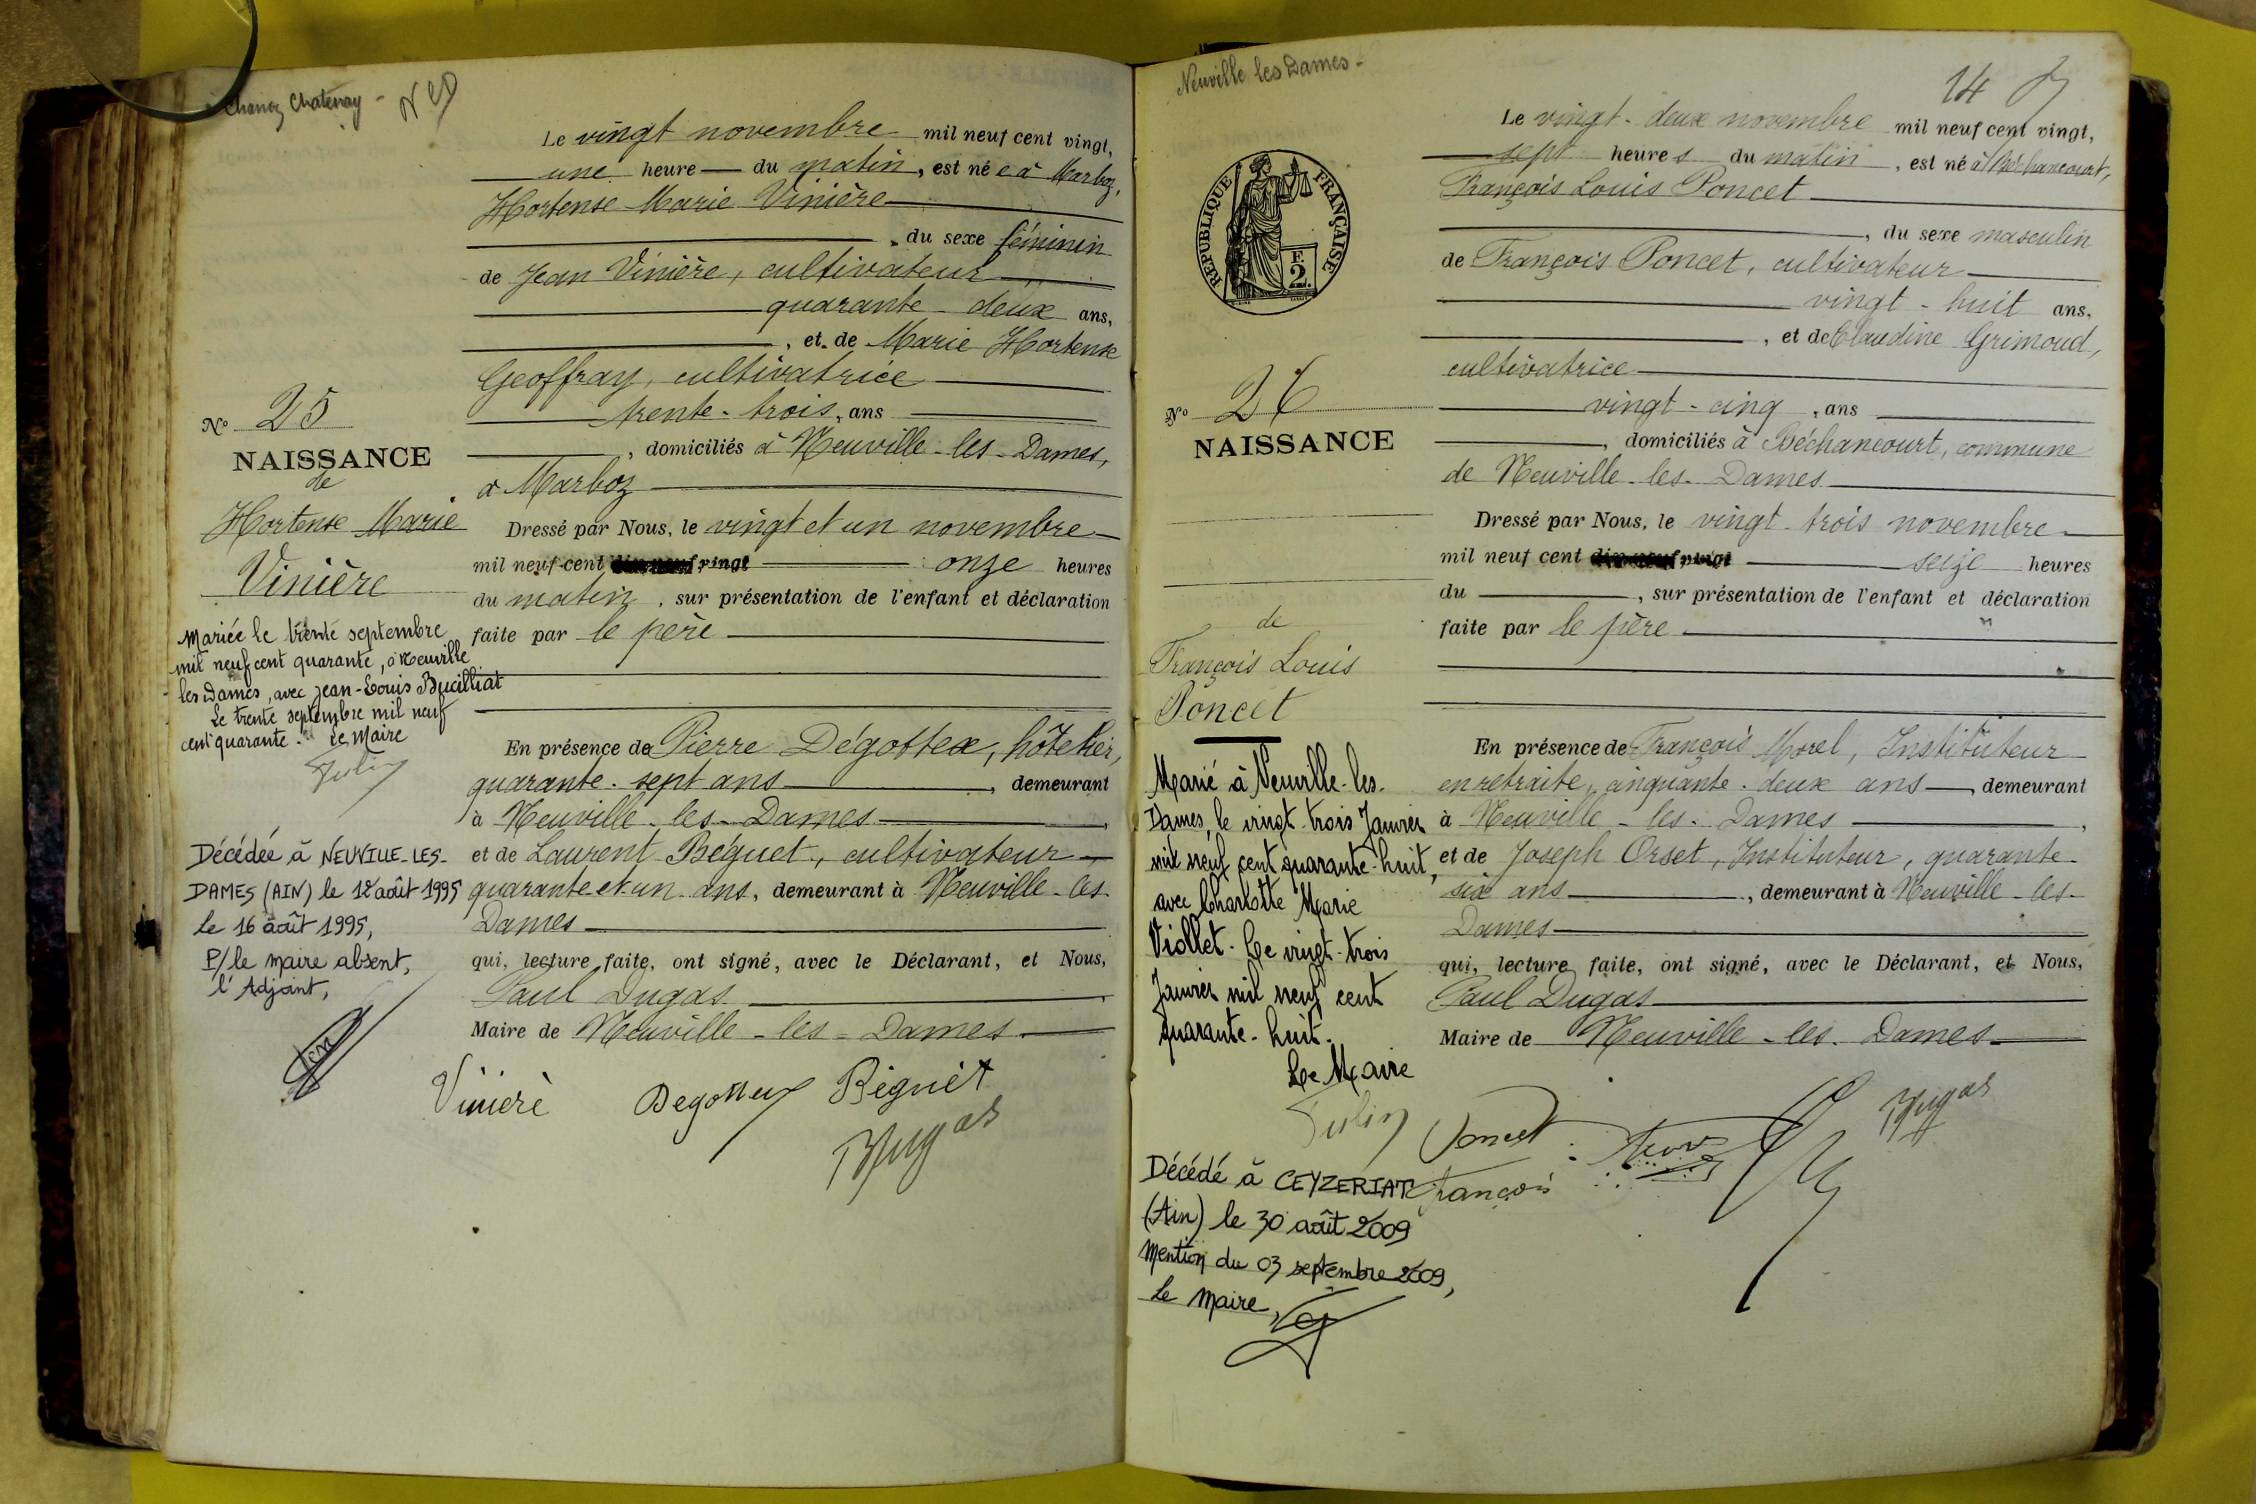 Chanoz Chatenay -
Le vingt novembre mil neuf cent vingt,
une heure du matin, est née à Marboz,
Hortense Marie Vinière
, du sexe féminin
de Jean Vinière, cultivateur
quarante deux ans,
, et de Marie Hortense
Geoffray, cultivatrice
trente-trois, ans
, domiciliés à Neuville-les-Dames,
à Marboz
Dressé par Nous, le vingt et un novembre
mil neuf cent vingt onze heures
du matin, sur présentation de l'enfant et déclaration
faite par le père
En présence de Pierre Dégottex, hôtelier,
quarante-sept ans, demeurant
à Neuville-les-Dames,
et de Laurent Béguet, cultivateur
quarante et un ans, demeurant à Neuville-les-
Dames
qui, lecture faite, ont signé, avec le Déclarant, et Nous,
Paul Dugas
Maire de Neuville-les-Dames
Vinière Degottex Béguet
Dugas
No 25
NAISSANCE
de
Hortense Marie
Vinière
Mariée le trente septembre
mil neuf cent quarante, à Neuville
les Dames, avec Jean-Louis Bucilliat
Le trente septembre mil neuf
cent quarante. Le Maire
Décédée à NEUVILLE-LES-
DAMES (AIN) le 12 août 1995
le 16 août 1995,
P/le maire absent,
l'Adjoint,
Neuville les Dames -
14
Le vingt-deux novembre mil neuf cent vingt,
sept heures du matin, est né à Béchancourt,
François Louis Poncet
, du sexe masculin
de François Poncet, cultivateur
vingt-huit ans,
, et de Claudine Grimoud,
cultivatrice
vingt-cinq, ans
, domiciliés à Béchancourt, commune
de Neuville-les-Dames
Dressé par Nous, le vingt-trois novembre
mil neuf cent vingt seize heures
du , sur présentation de l'enfant et déclaration
faite par le père
En présence de François Morel, Instituteur
en retraite, cinquante-deux ans, demeurant
à Neuville-les-Dames,
et de Joseph Orset, Instituteur, quarante-
six ans, demeurant à Neuville-les-
Dames
qui, lecture faite, ont signé, avec le Déclarant, et Nous,
Paul Dugas
Maire de Neuville-les-Dames
Poncet Dugas
François
REPUBLIQUE FRANÇAISE
E
2.
No 26
NAISSANCE
de
François Louis
Poncet
Marié à Neuville-les-
Dames, le vingt-trois Janvier
mil neuf cent quarante-huit,
avec Charlotte Marie
Viollet. Le vingt-trois
Janvier mil neuf cent
quarante-huit.
Le Maire
Décédé à CEYZERIAT
(Ain) le 30 août 2009
Mention du 03 septembre 2009,
Le Maire,